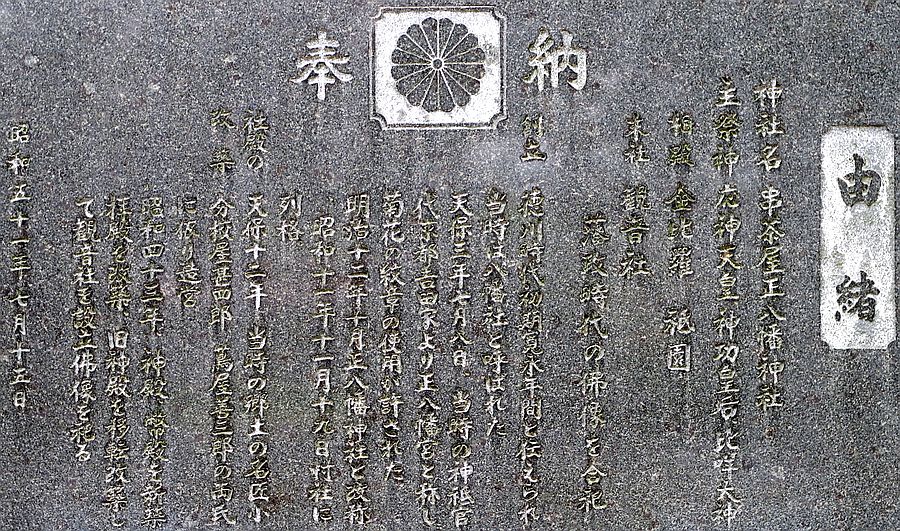 奉納
由緒
神社名 串茶屋正八幡神社
主祭神 応神天皇 神功皇后 比咩大神
相殿 金比羅 祇園
末社 観音社
落政時代の佛像を合祀
創立 徳川時代初期寛永年間と伝えられ
当時は八幡社と呼ばれた
天保三年七月八日、当時の神祇官
代京都吉田家より正八幡宮と称し
菊花の紋章の使用が許された
明治十二年十月正八幡神社と改称
昭和十一年十一月十九日村社に
列格
社殿の 天保十二年 当時の郷土の名匠小
改築 分校屋甚四郎 蔦屋喜三郎の両氏
に依り造営
昭和四十三年 神殿 幣殿を新築
拝殿を改築 旧神殿を移転改築し
て観音社を設立佛像を祀る
昭和五十一年七月十五日